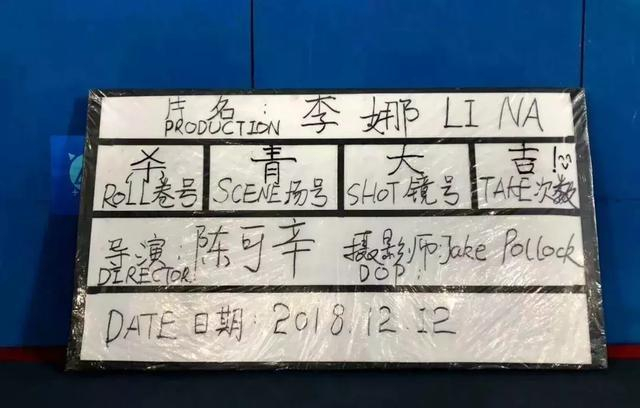 片名: 李娜 LI NA
PRODUCTION
杀 青 大 吉!
ROLL卷号 SCENE场号 SHOT镜号 TAKE次数
导演: 陈可辛 摄影师:Jake Pollock
DIRECTOR DOP
DATE日期: 2018.12.12